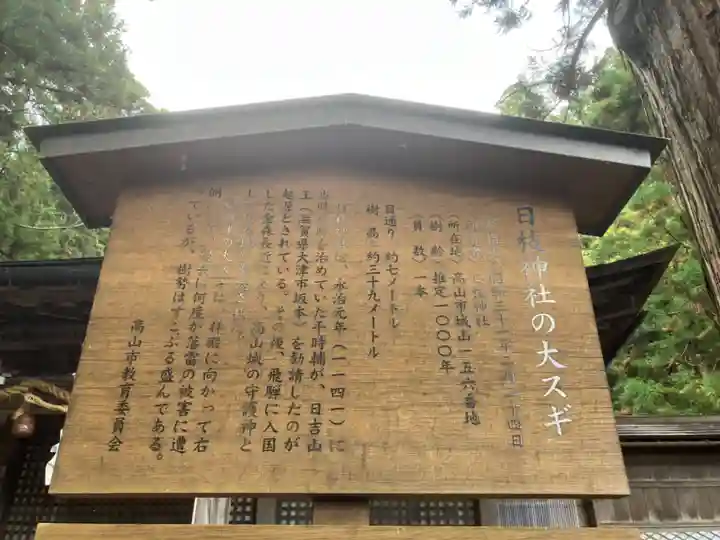 日枝神社の大スギ
四日
神社
(所在地) 高山市城山一五六番地
(樹齢) 推定一〇〇〇年
(員数) 一本
目通り 約七メートル
樹高 約三十九メートル
永治元年(一一四一)に
を治めていた平時輔が、日吉山
王(滋賀県大津市坂本)を勧請したのが
起源とされている。その後、飛騨に入国
した金森長近により、高山城の守護神と
拝殿に向かって右
に何度か落雷の被害に遭
っているが、樹勢はすこぶる盛んである。
高山市教育委員会